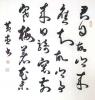 君自故鄉來
應知故鄉事
来日綺窗前
寒梅著花未